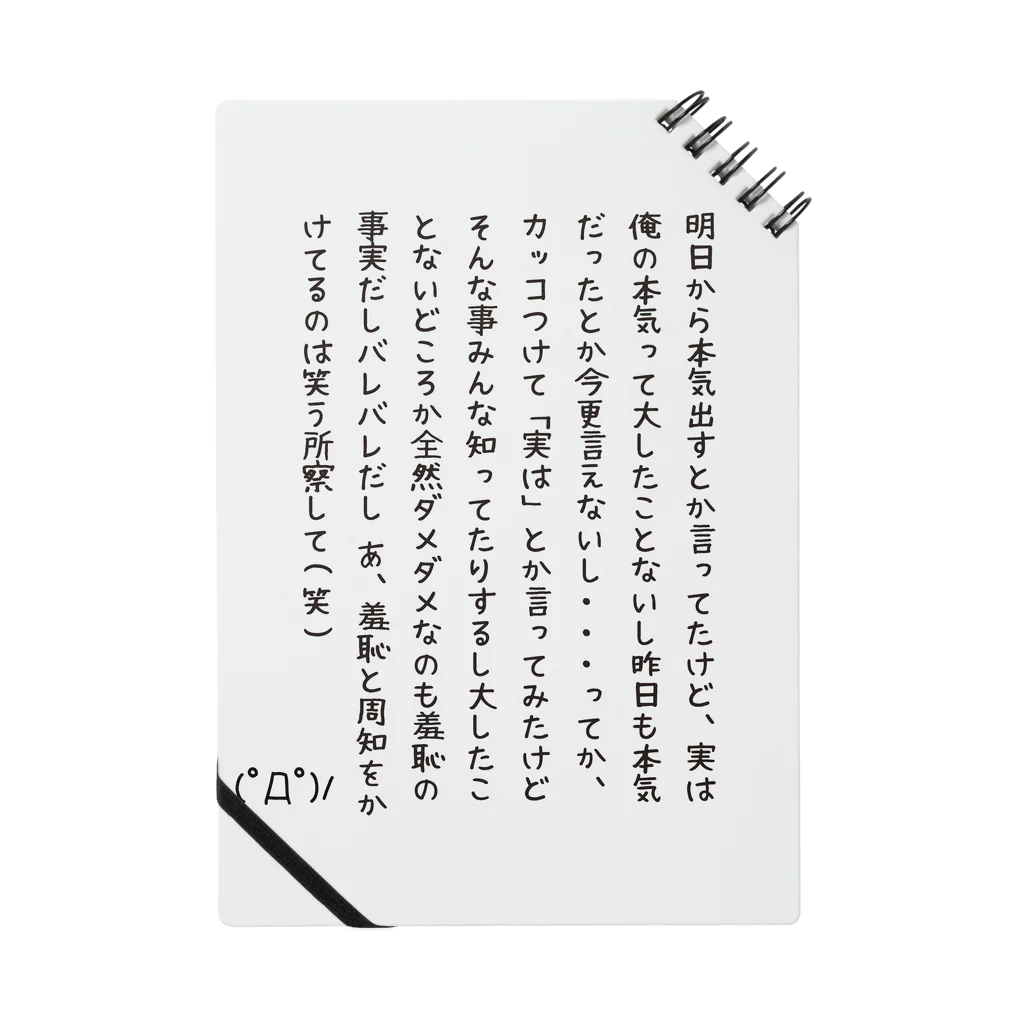 明日から本気出すとか言ってたけど、実は
俺の本気って大したことないし昨日も本気
だったとか今更言えないし・・・ってか、
カッコつけて「実は」とか言ってみたけど
そんな事みんな知ってたりするし大したこ
とないどころか全然ダメダメなのも羞恥の
事実だしバレバレだし あ、羞恥と周知をか
けてるのは笑う所察して(笑)
(ﾟДﾟ)/